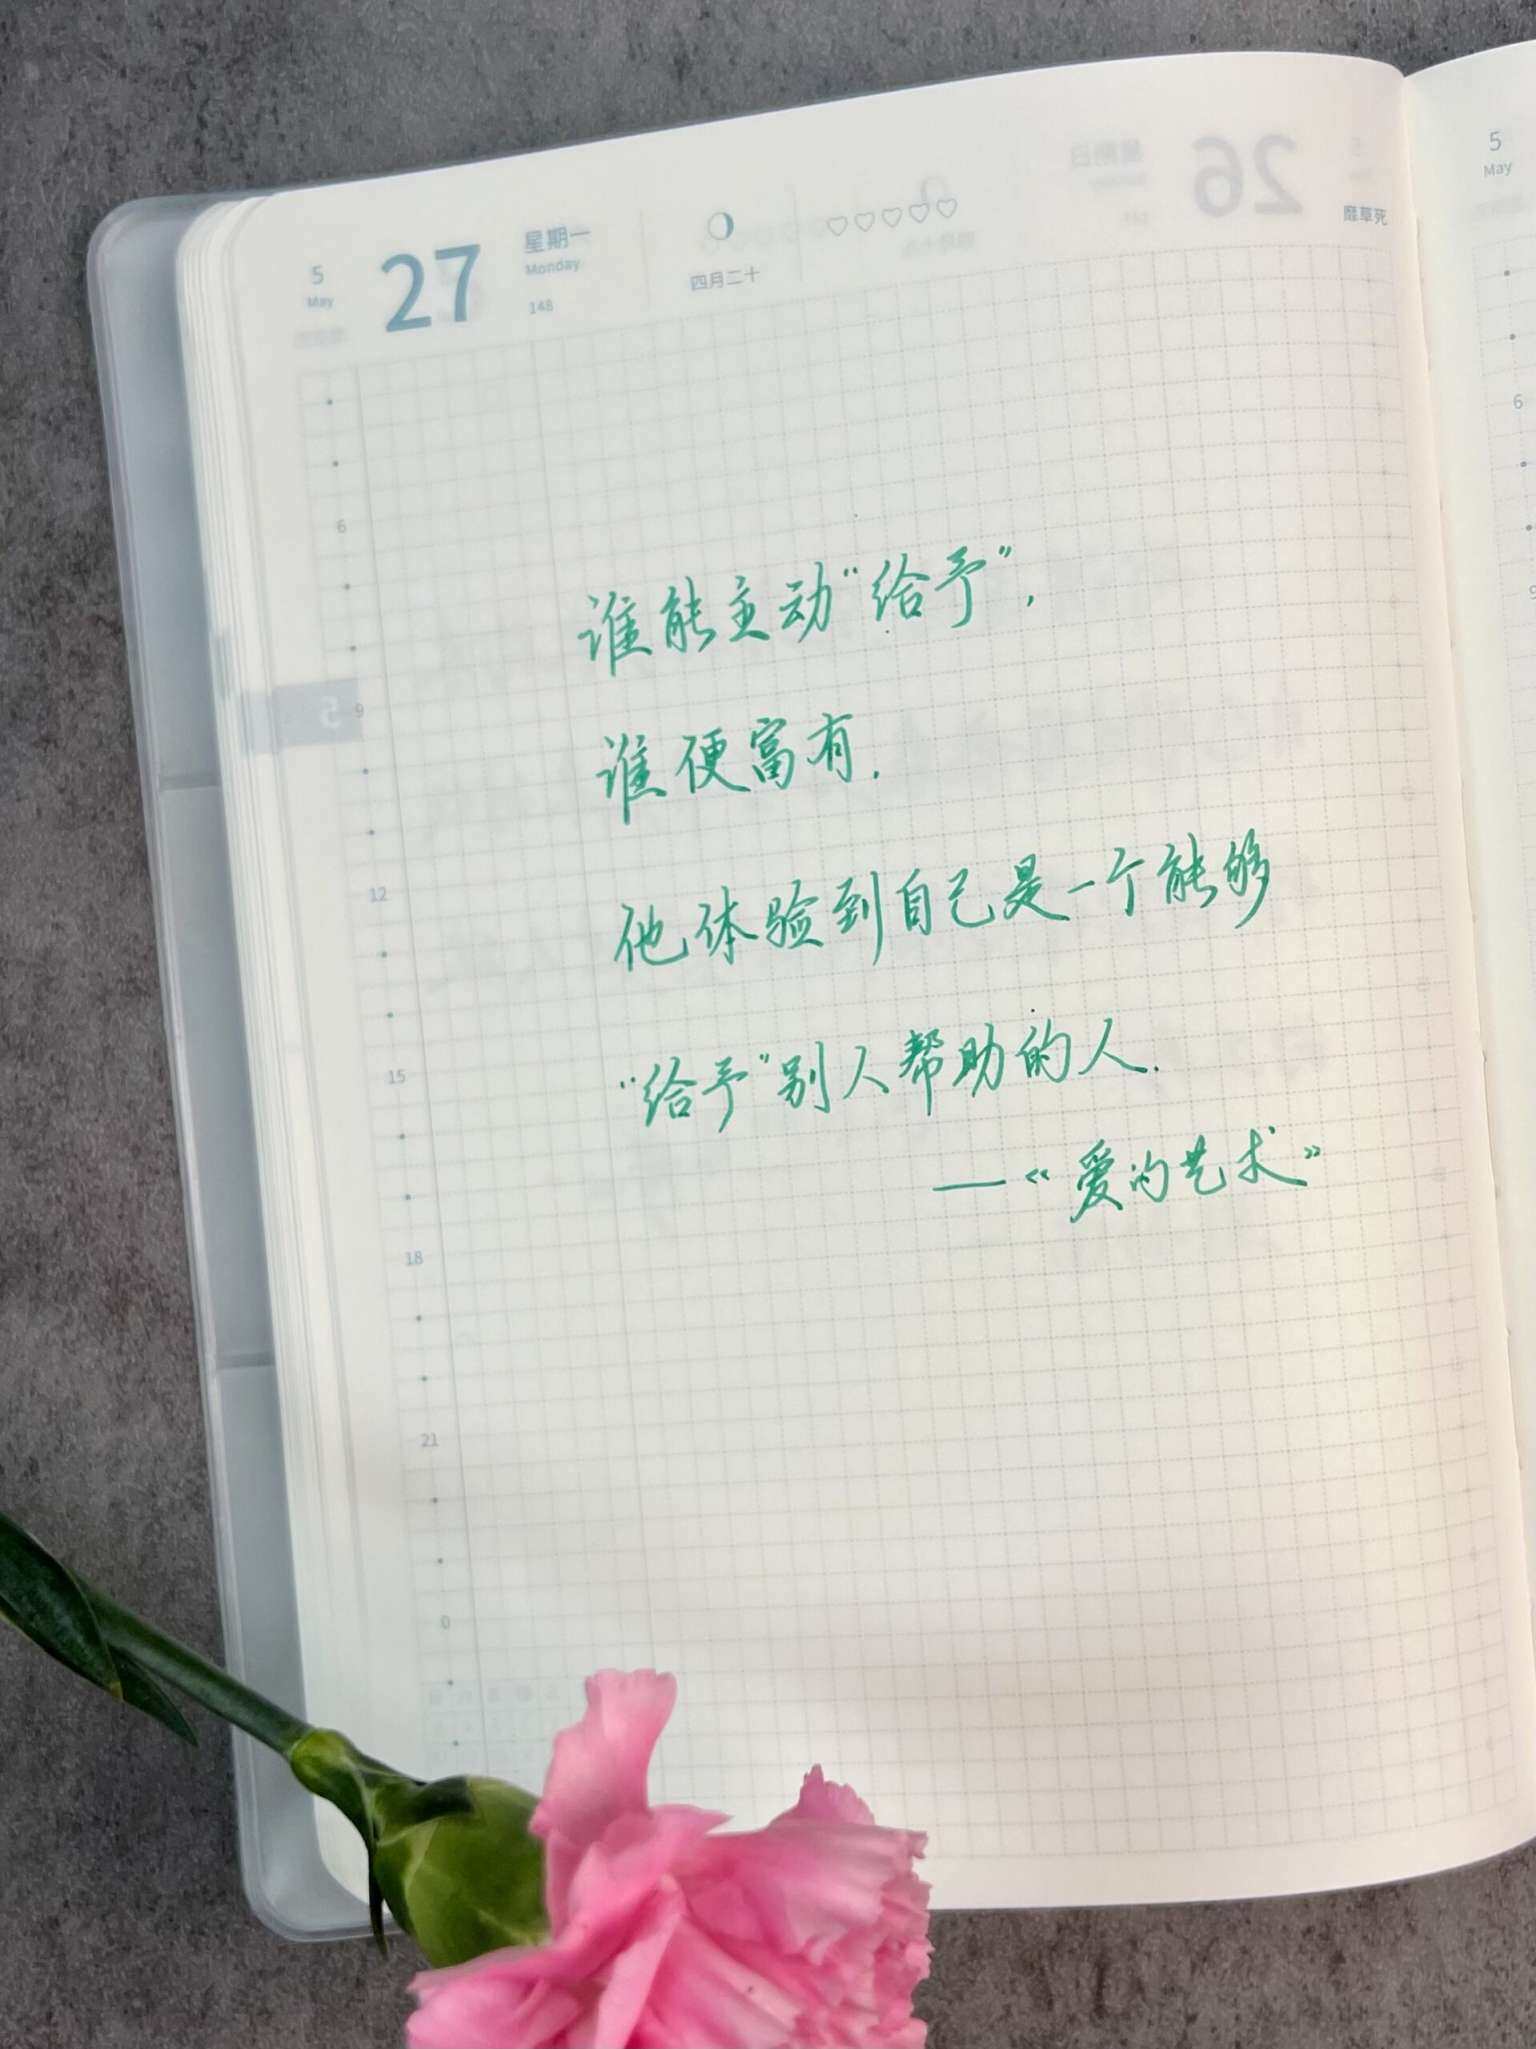 5
May
27
星期一
Monday
148
四月二十
靡草死
5
May
6
9
12
15
18
21
0
6
谁能主动“给予”,
谁便富有.
他体验到自己是一个能够
“给予”别人帮助的人.
——《爱的艺术》